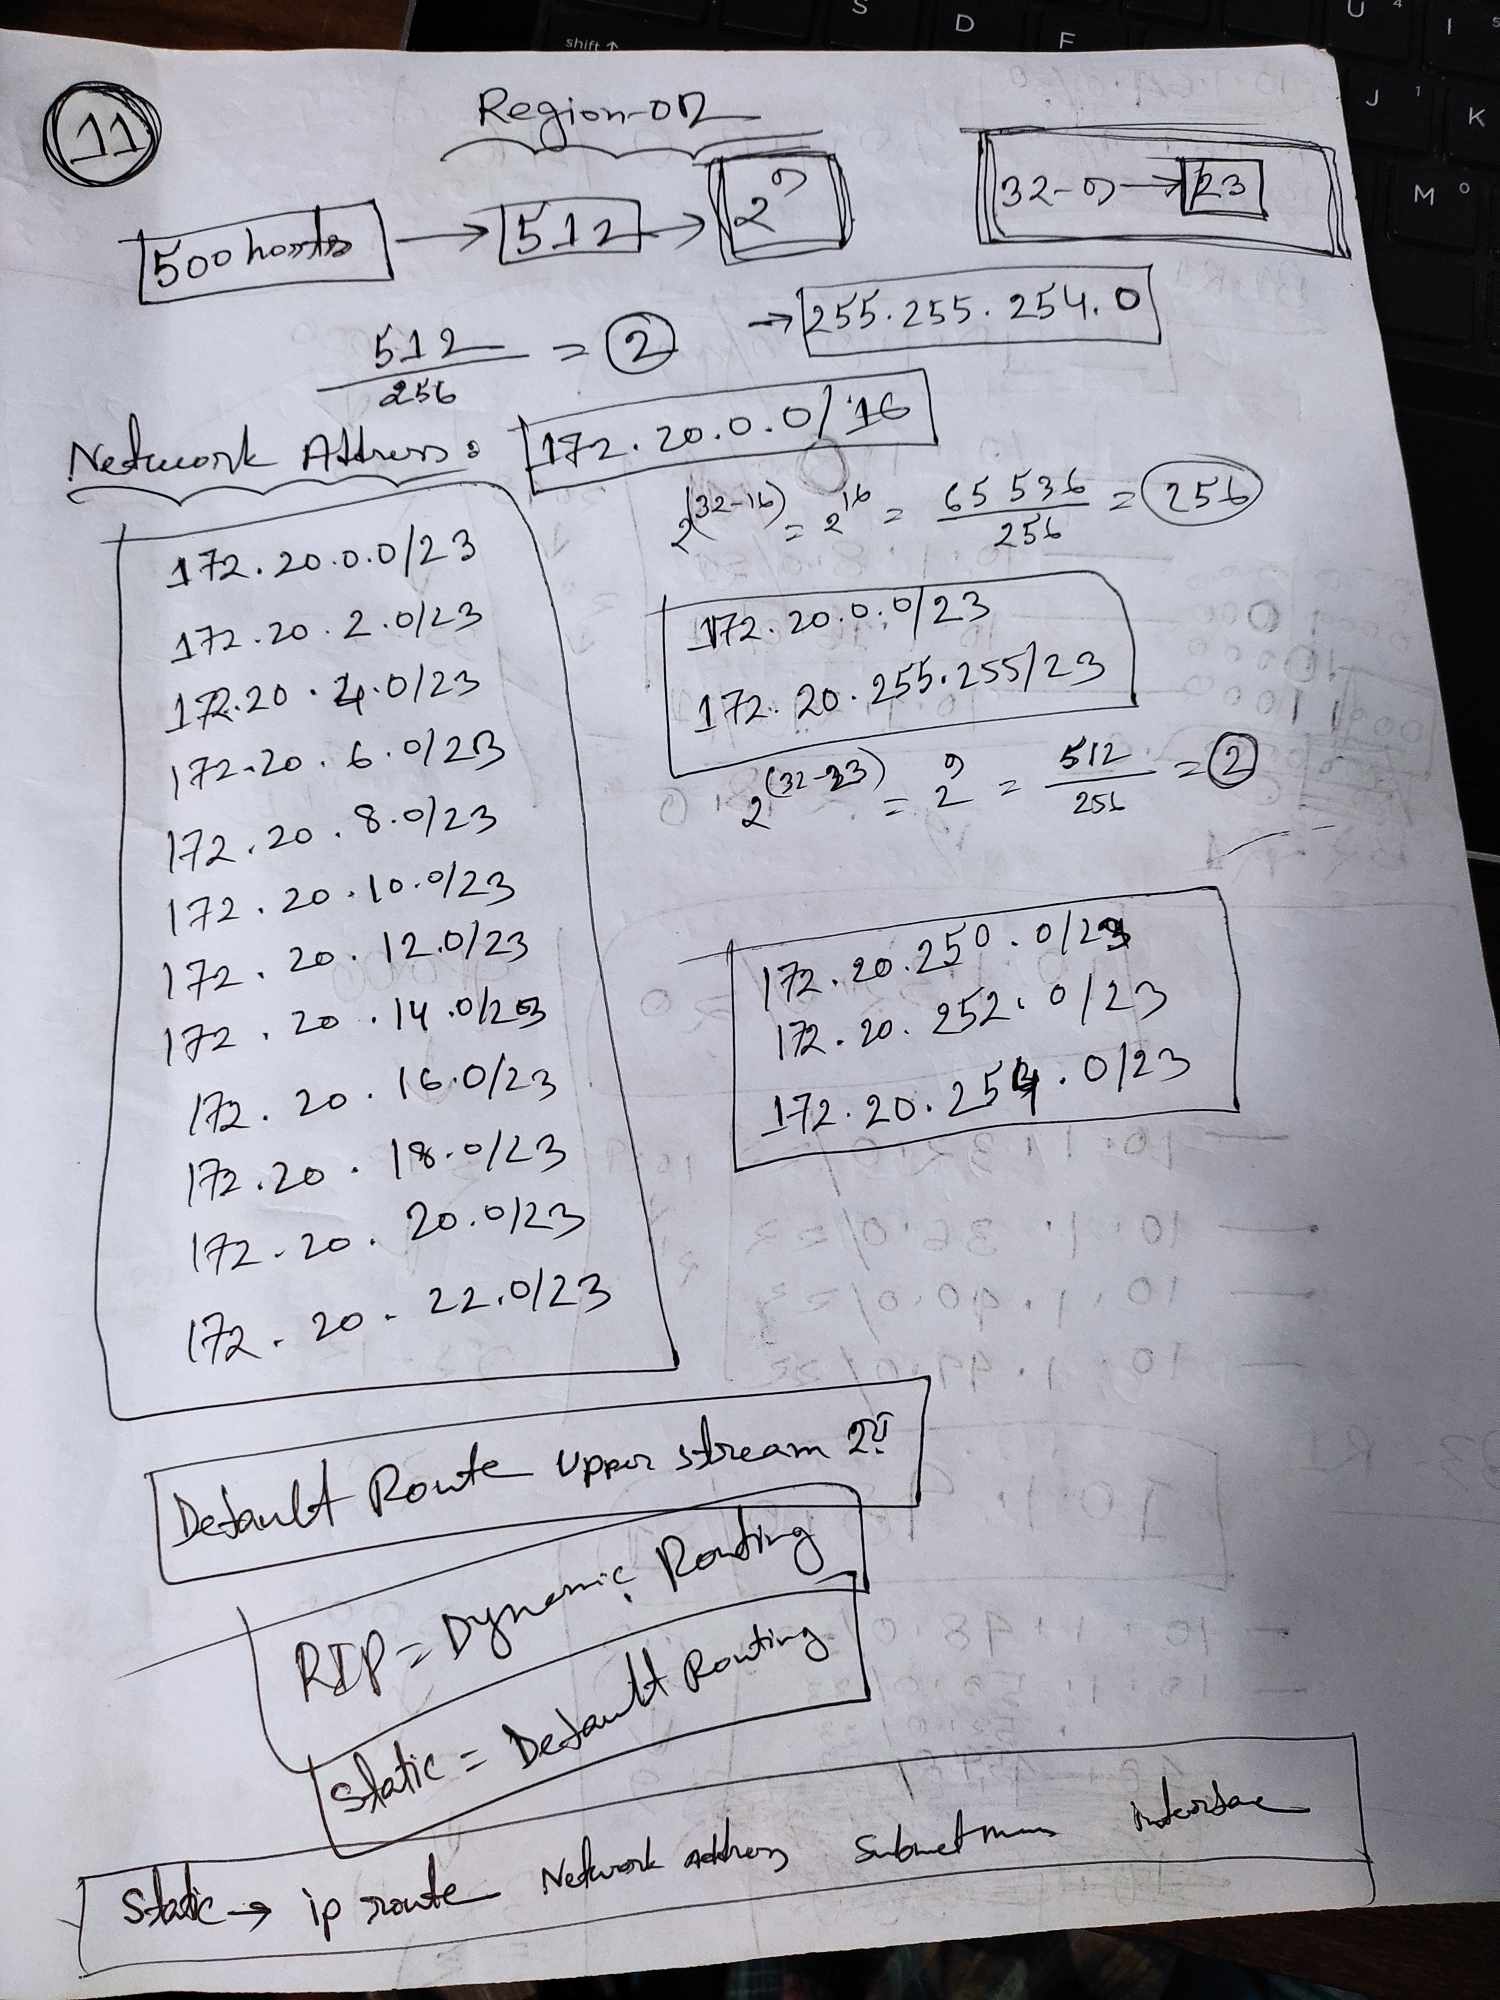 11
Region-02
500 hosts → 512 → 2^9
32-9 → 23
512/256 = 2
→ 255.255.254.0
Network Address: 172.20.0.0/16
2^(32-16) = 2^16 = 65536/256 = 256
172.20.0.0/23
172.20.2.0/23
172.20.4.0/23
172.20.6.0/23
172.20.8.0/23
172.20.10.0/23
172.20.12.0/23
172.20.14.0/23
172.20.16.0/23
172.20.18.0/23
172.20.20.0/23
172.20.22.0/23
172.20.0.0/23
172.20.255.255/23
2^(32-23) = 2^9 = 512/256 = 2
172.20.250.0/23
172.20.252.0/23
172.20.254.0/23
Default Route Upper stream
RIP = Dynamic Routing
Static = Default Routing
Static → ip route Network address Subnet interface
shift ↑
S
D
F
U 4
I 5
J 1
K
M 0